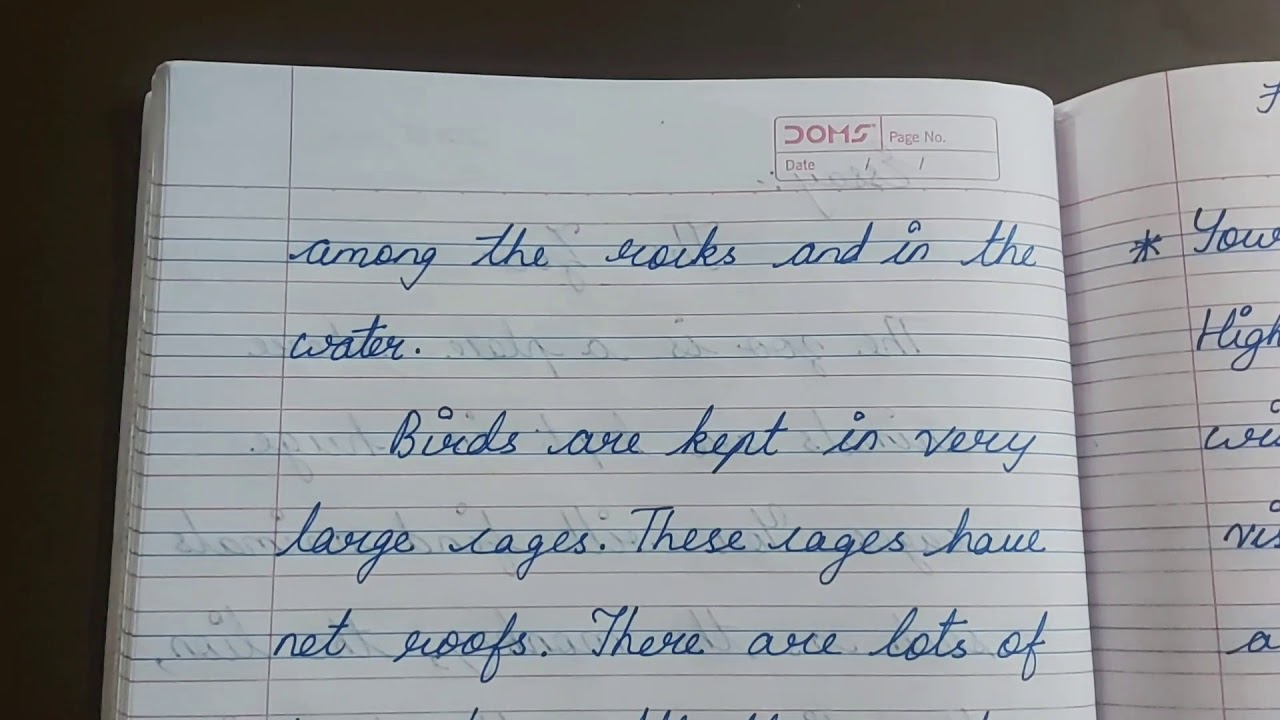 DOMS Page No.
Date / /
among the rocks and in the
water.
Birds are kept in very
large cages. These cages have
net roofs. There are lots of
* Your
High